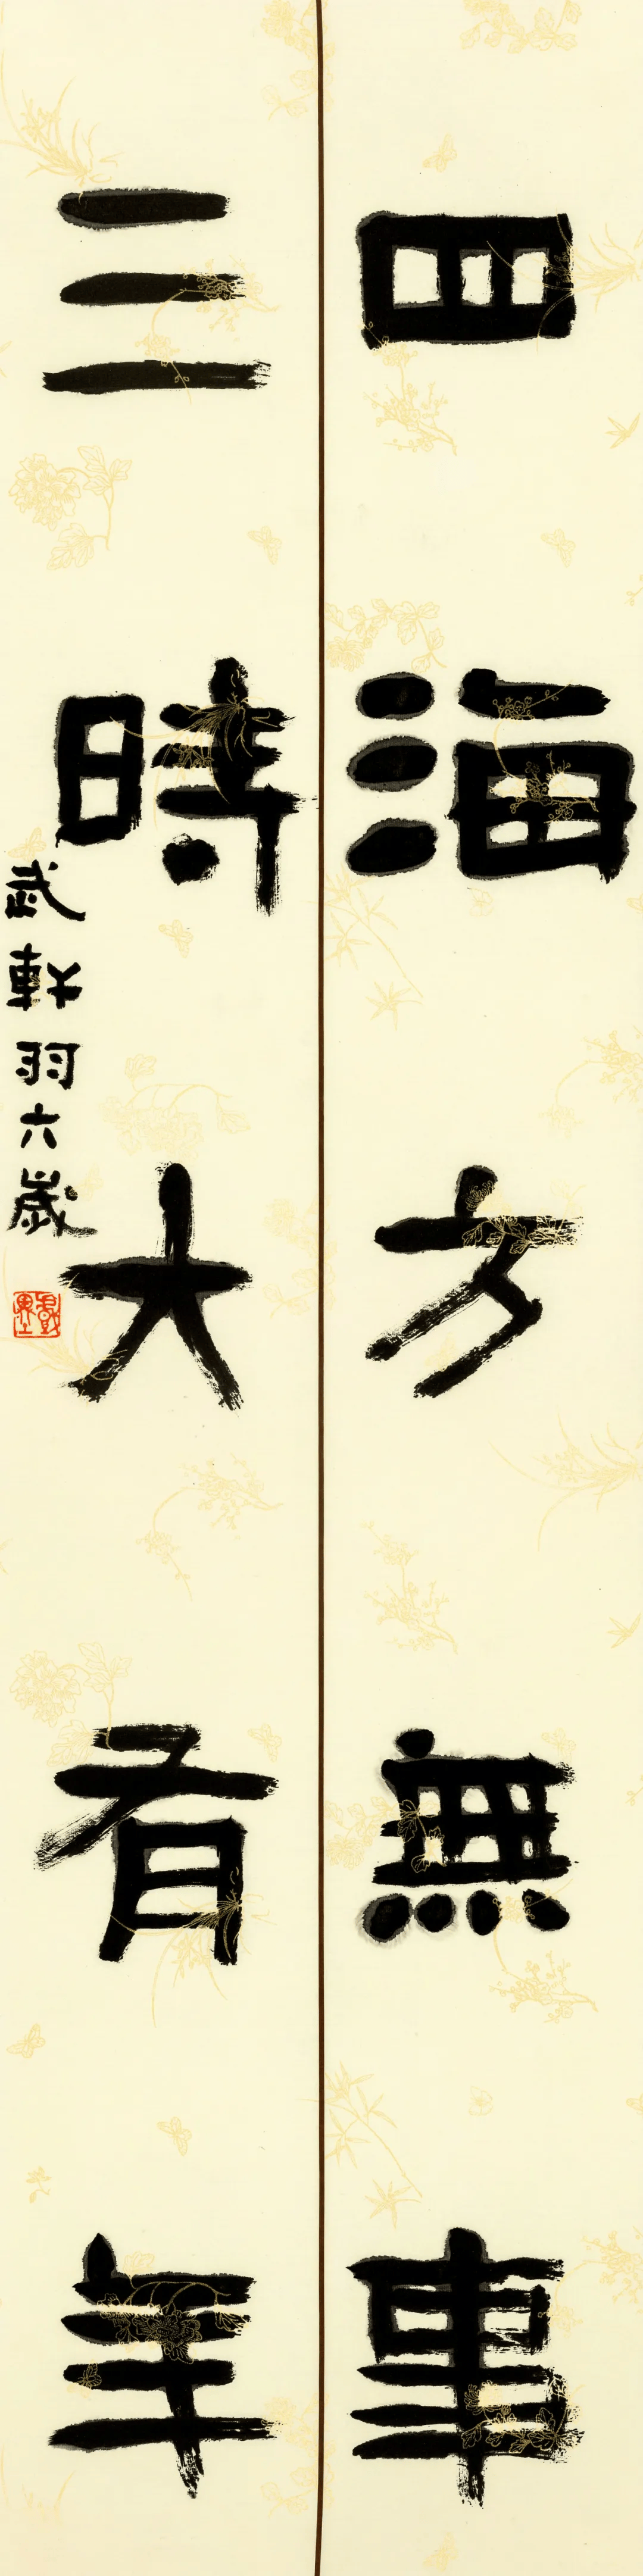 四海方無事
三時大有年
武軒羽六歲